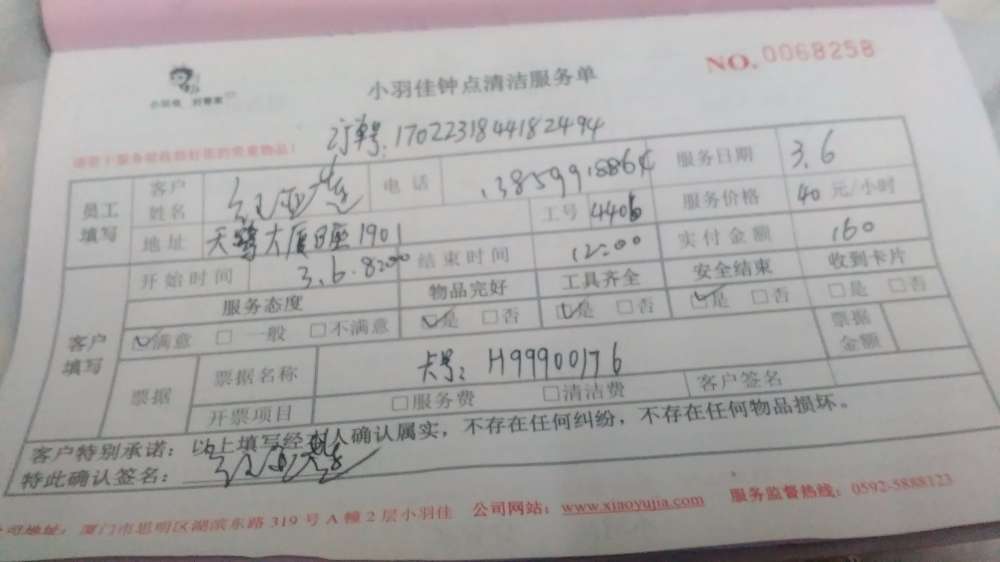 小羽佳钟点清洁服务单
NO.0068258
订单号:1702231844182494
员工填写 客户姓名 电话 服务日期 3.6
地址 天鹭大厦B座1901 工号 4406 服务价格 40 元/小时
开始时间 3.6.8:00 结束时间 12:00 实付金额 160
客户填写 服务态度 物品完好 工具齐全 安全结束 收到卡片
☑满意 □ 一般 □不满意 ☑是 □否 ☑是 □否 ☑是 □否 □是 □否
票据 票据名称 卡号:H99900176 票据金额
开票项目 □服务费 □清洁费 客户签名
客户特别承诺:以上填写经本人确认属实,不存在任何纠纷,不存在任何物品损坏。
特此确认签名:
公司地址:厦门市思明区湖滨东路319号A幢2层小羽佳 公司网站:www.xiaoyujia.com 服务监督热线:0592-5888123